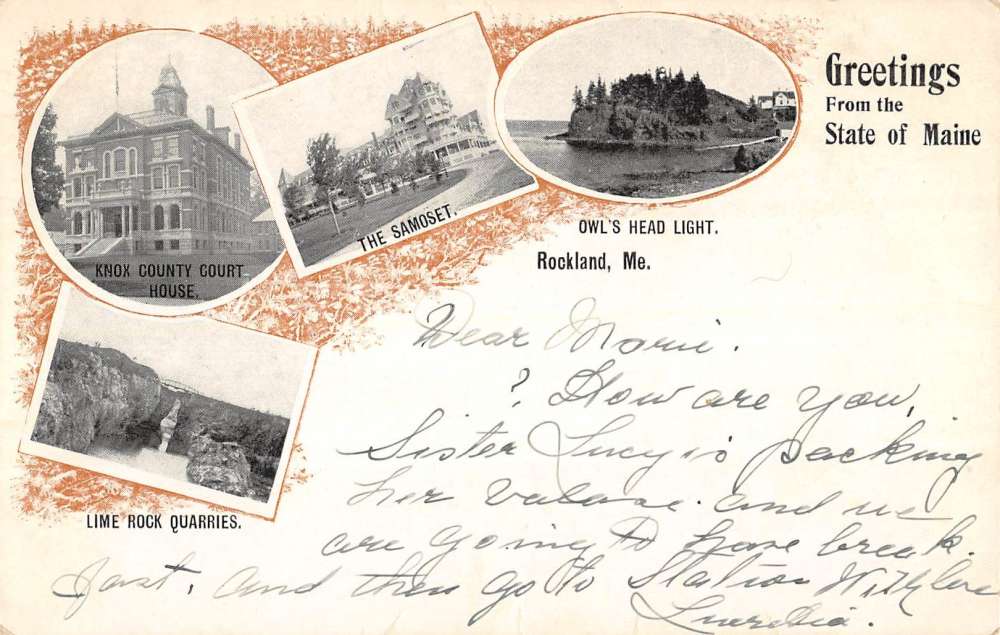 Greetings
From the
State of Maine
KNOX COUNTY COURT
HOUSE.
THE SAMOSET.
OWL'S HEAD LIGHT.
Rockland, Me.
LIME ROCK QUARRIES.
Dear
? How are you,
Sister Lucy is packing
her valase. and we
are going to have break.
fast, and then go to Station With